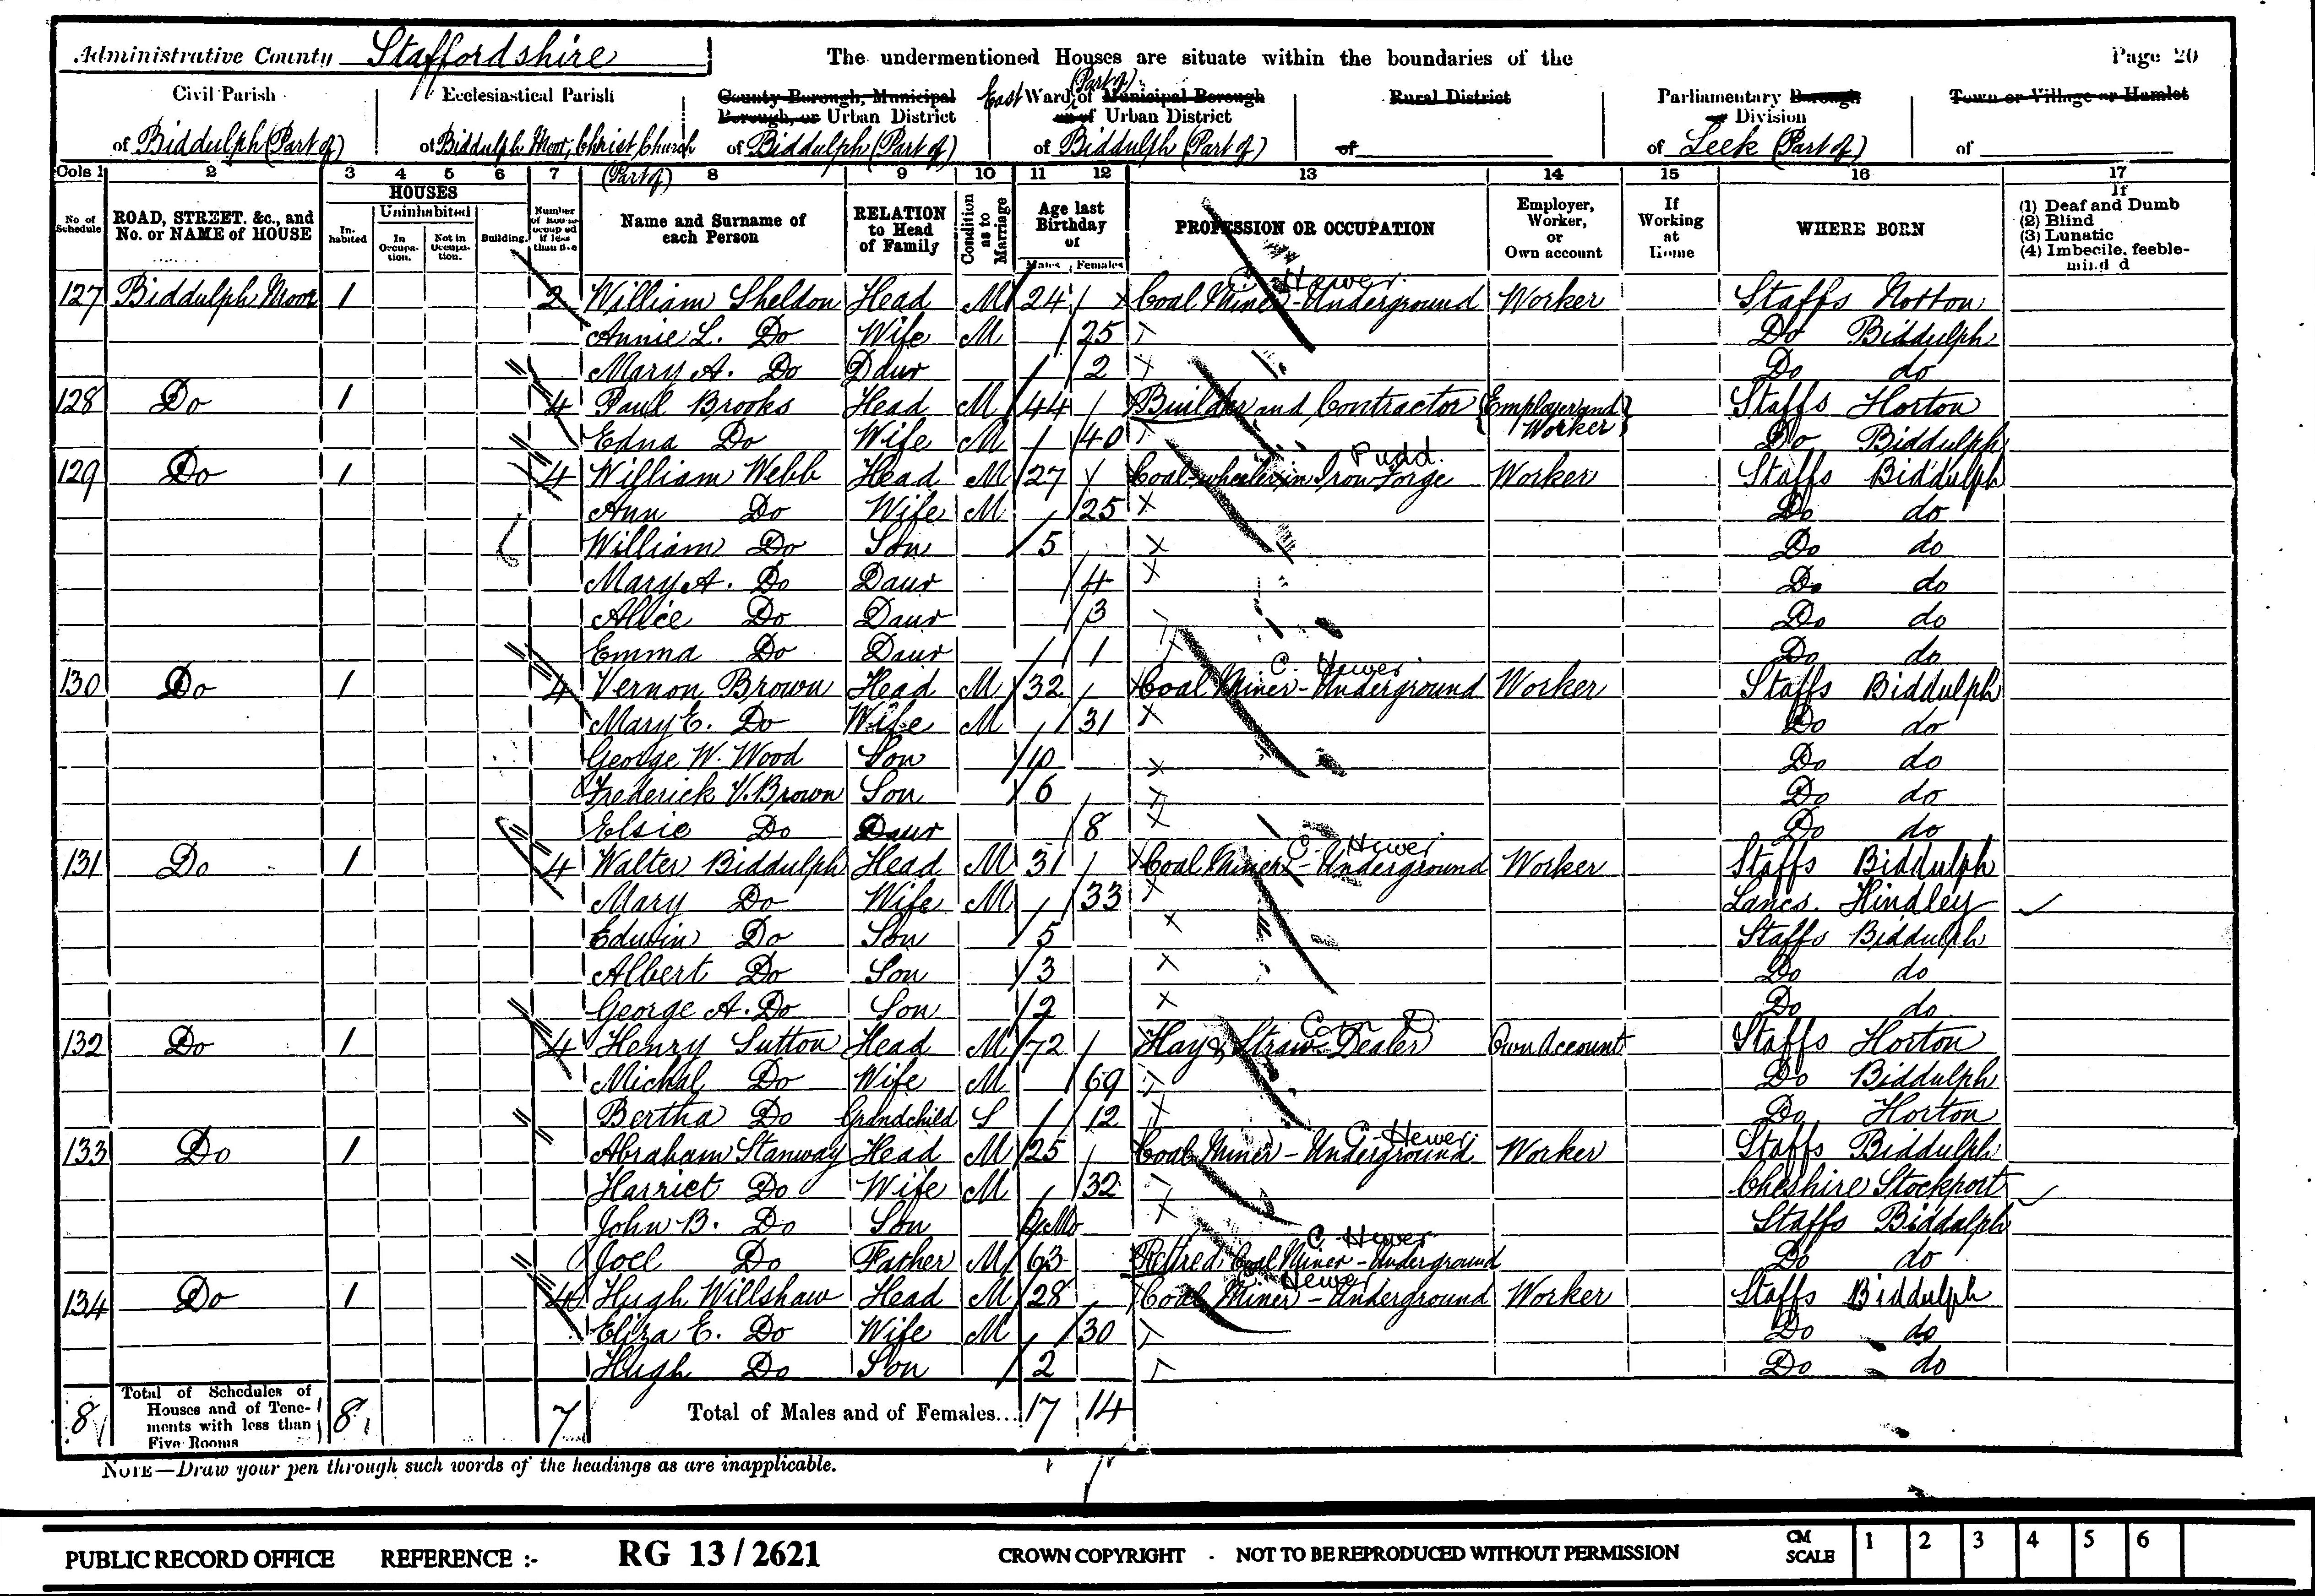 Administrative County Staffordshire The undermentioned Houses are situate within the boundaries of the Page 20
Civil Parish of Biddulph (Part of)
Ecclesiastical Parish of Biddulph Moor, Christ Church (Part of)
County Borough, Municipal Borough, or Urban District of Biddulph (Part of)
East Ward (Part of) of Municipal Borough or of Urban District of Biddulph (Part of)
Rural District of
Parliamentary Borough or Division of Leek (Part of)
Town or Village or Hamlet of
Cols 1 2 3 4 5 6 7 8 9 10 11 12 13 14 15 16 17
No of Schedule
ROAD, STREET, &c., and No. or NAME of HOUSE
HOUSES
Inhabited
Uninhabited
In Occupation.
Not in Occupation.
Building.
Number of Rooms occupied if less than five
Name and Surname of each Person
RELATION to Head of Family
Condition as to Marriage
Age last Birthday of
Males Females
PROFESSION OR OCCUPATION
Employer, Worker, or Own account
If Working at Home
WHERE BORN
If
(1) Deaf and Dumb
(2) Blind
(3) Lunatic
(4) Imbecile, feeble-minded
C. Hewer
127 Biddulph Moor 1 2 William Sheldon Head M 24 Coal Miner - Underground Worker Staffs Norton
Annie L. Do Wife M 25 Do Biddulph
Mary A. Do Daur 2 Do do
128 Do 1 4 Paul Brooks Head M 44 Builder and Contractor {Employer and Worker} Staffs Horton
Edna Do Wife M 40 Do Biddulph
Pudd.
129 Do 1 4 William Webb Head M 27 Coal-wheeler in Iron Forge Worker Staffs Biddulph
Ann Do Wife M 25 Do do
William Do Son 5 Do do
Mary A. Do Daur 4 Do do
Alice Do Daur 3 Do do
Emma Do Daur 1 Do do
C. Hewer
130 Do 1 4 Vernon Brown Head M 32 Coal Miner - Underground Worker Staffs Biddulph
Mary E. Do Wife M 31 Do do
George W. Wood Son 10 Do do
Frederick V. Brown Son 6 Do do
Elsie Do Daur 8 Do do
C. Hewer
131 Do 1 4 Walter Biddulph Head M 31 Coal Miner - Underground Worker Staffs Biddulph
Mary Do Wife M 33 Lancs. Hindley
Edwin Do Son 5 Staffs Biddulph
Albert Do Son 3 Do do
George A. Do Son 2 Do do
132 Do 1 4 Henry Sutton Head M 72 Hay & Straw Dealer Own Account Staffs Horton
Michal Do Wife M 69 Do Biddulph
Bertha Do Grandchild S 12 Do Horton
C. Hewer
133 Do 1 Abraham Stanway Head M 25 Coal Miner - Underground Worker Staffs Biddulph
Harriet Do Wife M 32 Cheshire Stockport
John B. Do Son Mo Staffs Biddulph
C. Hewer
Joel Do Father M 63 Retired Coal Miner - Underground Do do
Hewer
134 Do 1 4 Hugh Willshaw Head M 28 Coal Miner - Underground Worker Staffs Biddulph
Eliza E. Do Wife M 30 Do do
Hugh Do Son 2 Do do
8 Total of Schedules of Houses and of Tenements with less than Five Rooms 8 7 Total of Males and of Females... 17 14
NOTE—Draw your pen through such words of the headings as are inapplicable.
PUBLIC RECORD OFFICE REFERENCE :- RG 13/2621 CROWN COPYRIGHT - NOT TO BE REPRODUCED WITHOUT PERMISSION CM SCALE 1 2 3 4 5 6